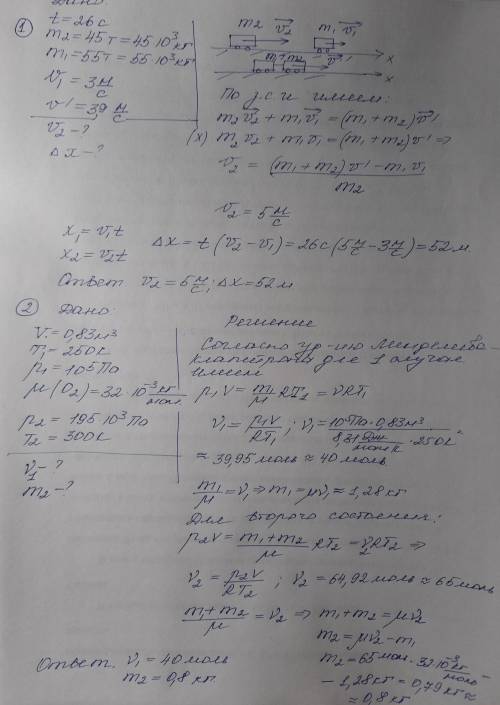 Дано:
① t = 26 с
m2 = 45 т = 45·10³ кг
m1 = 55 т = 55·10³ кг
v1 = 3 м/с
v' = 3,9 м/с
v2 - ?
Δx - ?
m2 v2 m1 v1
x
m1+m2 v'
x
По з.с.и имеем:
m2v2 + m1v1 = (m1+m2)v'
(x) m2v2 + m1v1 = (m1+m2)v' ⇒
v2 = ((m1+m2)v' - m1v1) / m2
v2 = 5 м/с
x1 = v1t
x2 = v2t
Δx = t(v2 - v1) = 26 с (5 м/с - 3 м/с) = 52 м.
Ответ v2 = 5 м/с; Δx = 52 м
② Дано:
V = 0,83 м³
T1 = 250 К
p1 = 10⁵ Па
μ(O2) = 32·10⁻³ кг/моль
p2 = 195·10³ Па
T2 = 300 К
ν1 - ?
m2 - ?
Решение
Согласно ур-ию Менделеева-
Клапейрона для 1 случая
имеем
p1V = m1/μ RT1 = νRT1
ν1 = p1V/RT1; ν1 = 10⁵ Па · 0,83 м³ / 8,31 Дж/моль К · 250 К
≈ 39,95 моль ≈ 40 моль
m1/μ = ν1 ⇒ m1 = μν1 ≈ 1,28 кг
Для второго состояния:
p2V = (m1+m2)/μ RT2 = ν2RT2 ⇒
ν2 = p2V/RT2; ν2 = 64,92 моль ≈ 65 моль
(m1+m2)/μ = ν2 ⇒ m1+m2 = μν2
m2 = μν2 - m1
m2 = 65 моль · 32·10⁻³ кг/моль
- 1,28 кг = 0,79 кг ≈
≈ 0,8 кг
Ответ. ν1 = 40 моль
m2 = 0,8 кг.